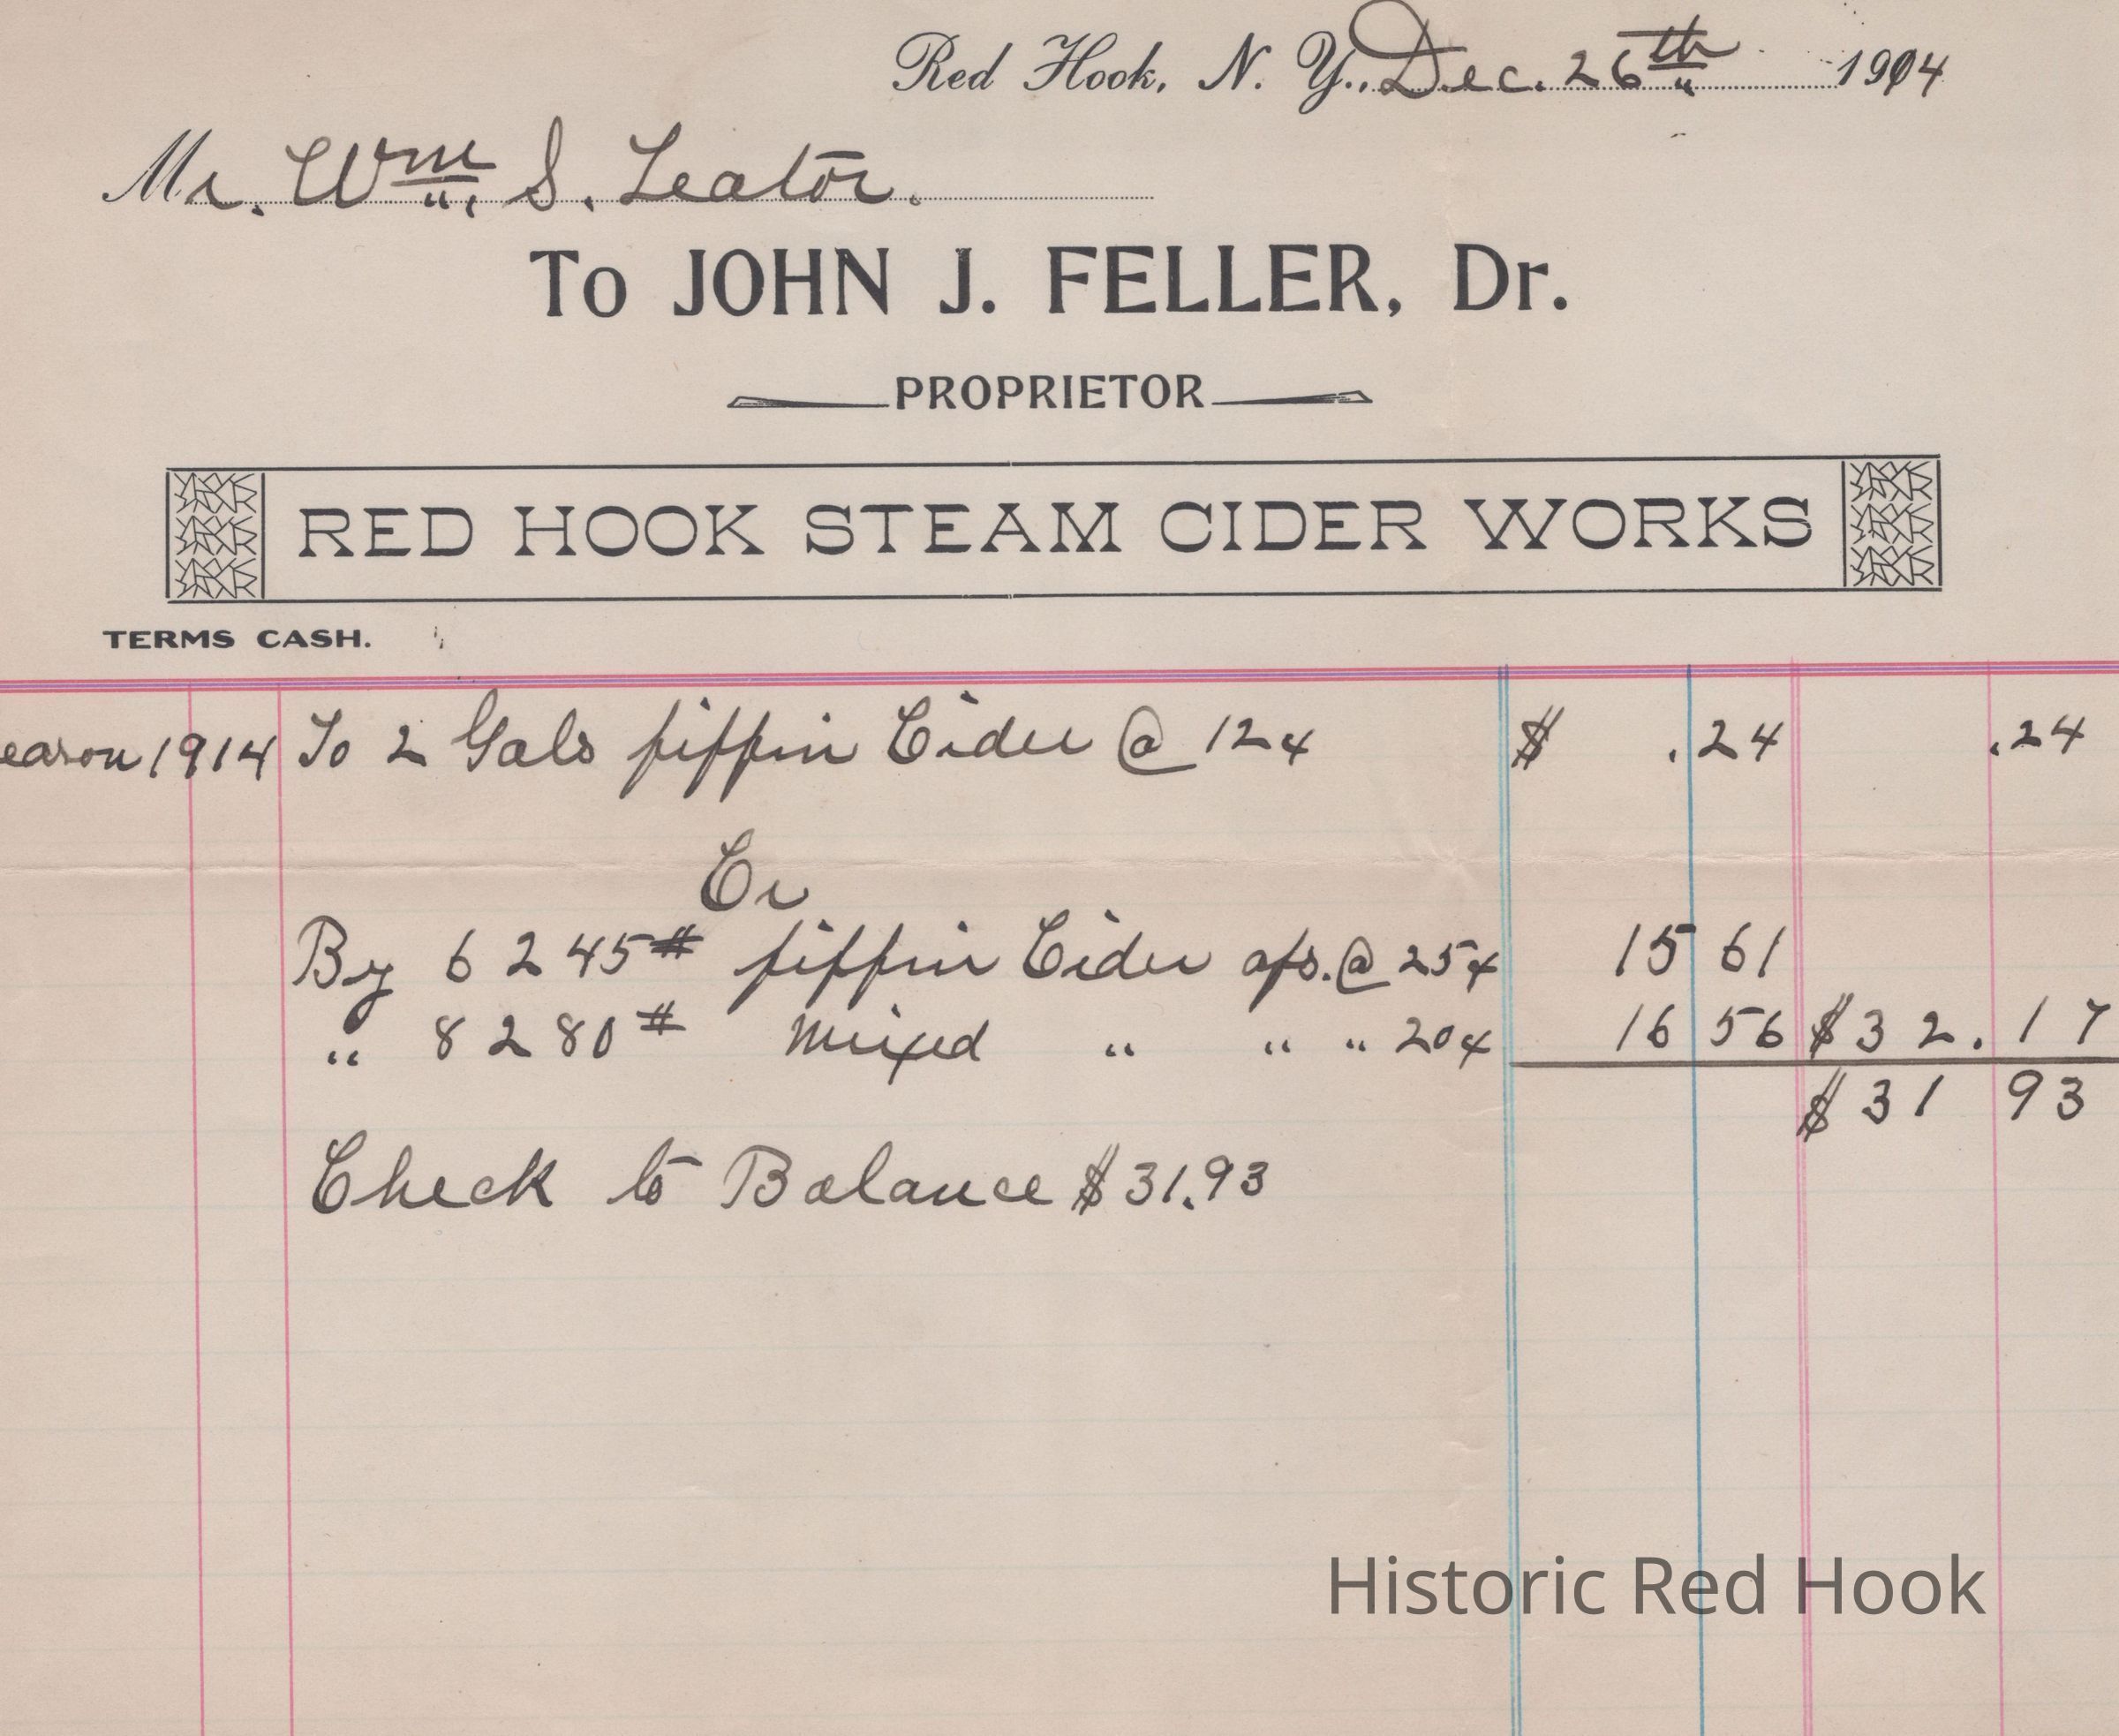 Red Hook, N. Y., Dec. 26th 1914
Mr. Wm. S. Teator.
To JOHN J. FELLER, Dr.
PROPRIETOR
RED HOOK STEAM CIDER WORKS
TERMS CASH.
eason 1914 To 2 Gals pippin Cider @ 12¢ $ .24 .24
Cr
By 6245# pippin Cider aps. @ 25¢ 15 61
" 8280# Mixed " " " 20¢ 16 56 $32.17
$31 93
Check to Balance $31.93
Historic Red Hook